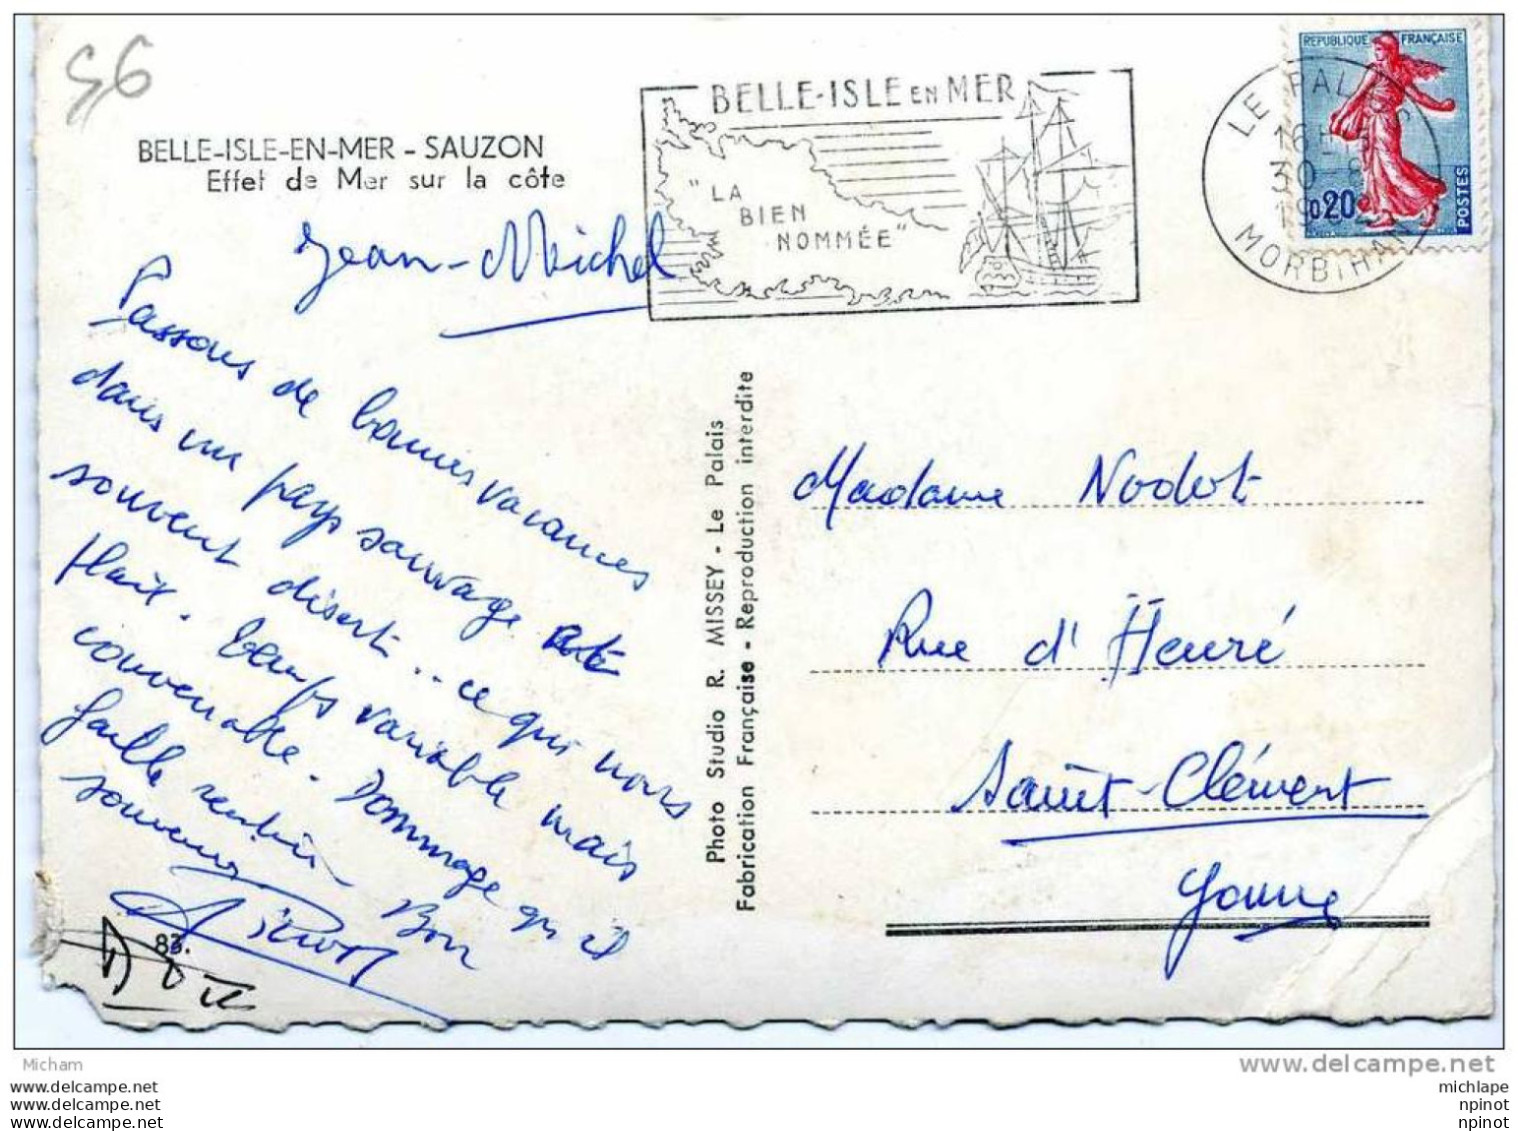 56
BELLE-ISLE-EN-MER - SAUZON
Effet de Mer sur la côte
BELLE-ISLE EN MER
"LA
BIEN
NOMMÉE"
REPUBLIQUE FRANÇAISE
0,20
POSTES
LE PALAIS
30-8
MORBIHAN
Jean-Michel
Passons de bonnes vacances
dans un pays sauvage et
souvent désert.. ce qui nous
plaît. Temps variable mais
convenable. Dommage qu'il
faille rentrer. Bon
souvenir
83.
Photo Studio R. MISSEY - Le Palais
Fabrication Française - Reproduction interdite
Madame Nodot
Rue d'Heuré
Saint-Clément
Yonne
Micham
www.delcampe.net
www.delcampe.net
www.delcampe.net
www.delcampe.net
michlape
npinot
npinot